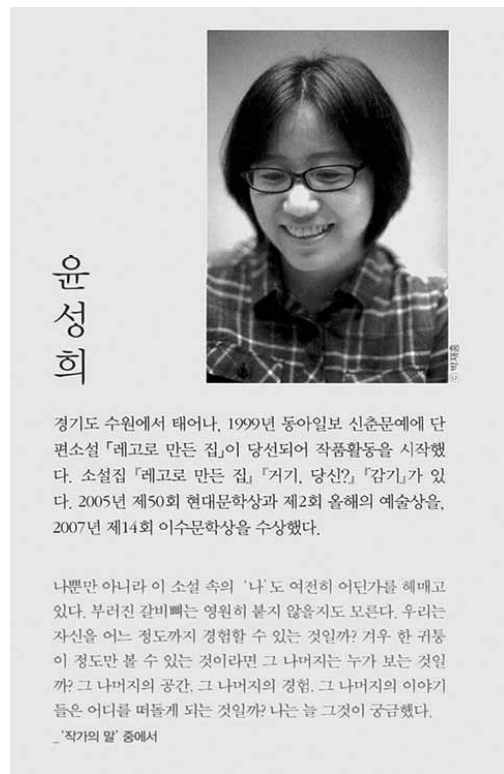 윤성희
ⓒ 박재홍
경기도 수원에서 태어나, 1999년 동아일보 신춘문예에 단
편소설 「레고로 만든 집」이 당선되어 작품활동을 시작했
다. 소설집 『레고로 만든 집』 『거기, 당신?』 『감기』가 있
다. 2005년 제50회 현대문학상과 제2회 올해의 예술상을,
2007년 제14회 이수문학상을 수상했다.
나뿐만 아니라 이 소설 속의 '나'도 여전히 어딘가를 헤매고
있다. 부러진 갈비뼈는 영원히 붙지 않을지도 모른다. 우리는
자신을 어느 정도까지 경험할 수 있는 것일까? 겨우 한 귀퉁
이 정도만 볼 수 있는 것이라면 그 나머지는 누가 보는 것일
까? 그 나머지의 공간. 그 나머지의 경험. 그 나머지의 이야기
들은 어디를 떠돌게 되는 것일까? 나는 늘 그것이 궁금했다.
_ '작가의 말' 중에서